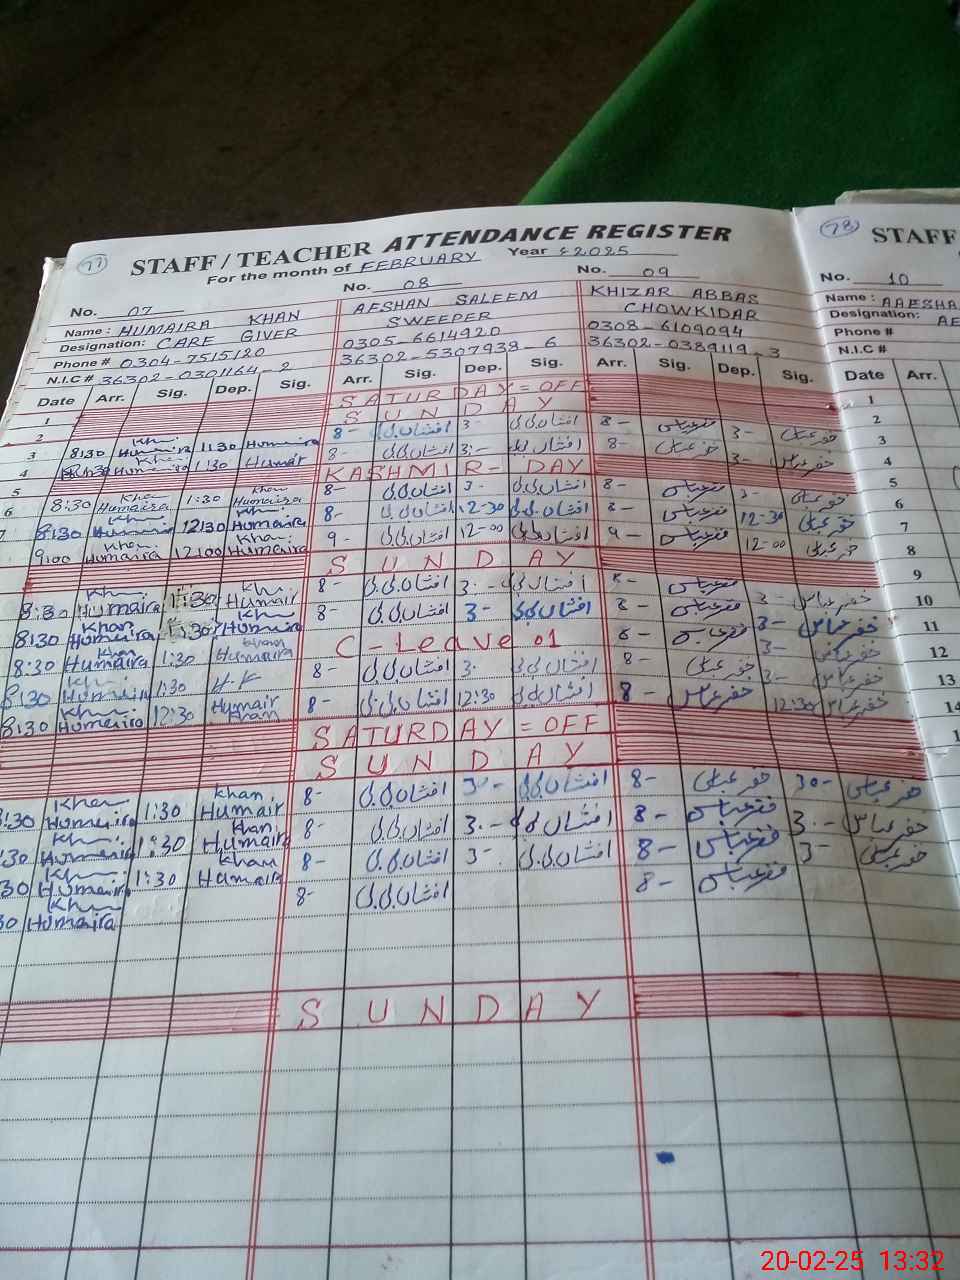 77
STAFF / TEACHER ATTENDANCE REGISTER
For the month of FEBRUARY Year 2025
No. 07 No. 08 No. 09
Name : HUMAIRA KHAN AFSHAN SALEEM KHIZAR ABBAS
Designation: CARE GIVER SWEEPER CHOWKIDAR
Phone # 0304-7515120 0305-6614920 0308-6109094
N.I.C # 36302-0301164-2 36302-5307938-6 36302-0389119-3
Date Arr. Sig. Dep. Sig. Arr. Sig. Dep. Sig. Arr. Sig. Dep. Sig.
1 SATURDAY = OFF
2 SUNDAY
3 8:30 Khan Humaira 1:30 Humaira 8- افشاں بی بی 3- افشاں بی بی 8- خضر عباس 3- خضر عباس
4 8:30 Khan Humaira 1:30 Humair 8- افشاں بی بی 3:- افشاں بی بی 8- خضر عباس 3- خضر عباس
5 KASHMIR-DAY
6 8:30 Khan Humaira 1:30 Khan Humaira 8- افشاں بی بی 3- افشاں بی بی 8- خضر عباس 3- خضر عباس
7 8:30 Khan Humaira 12:30 Khan Humaira 8- افشاں بی بی 12-30 افشاں بی بی 8- خضر عباس 12-30 خضر عباس
9:00 Khan Humaira 12:00 Khan Humaira 9- افشاں بی بی 12-00 افشاں بی بی 9- خضر عباس 12-00 خضر عباس
SUNDAY
8:30 Khan Humaira 1:30 Khan Humair 8- افشاں بی بی 3:- افشاں بی بی 8- خضر عباس 3- خضر عباس
8:30 Khan Humaira 1:30 Khan Humaira 8- افشاں بی بی 3- افشاں بی بی 8- خضر عباس 3- خضر عباس
8:30 Khan Humaira 1:30 Khan Humaira C-Leave 01 8- خضر عباس 3- خضر عباس
8:30 Khan Humaira 1:30 H.K 8- افشاں بی بی 3- افشاں بی بی 8- خضر عباس 3- خضر عباس
8:30 Khan Humaira 12:30 Humair Khan 8- افشاں بی بی 12:30 افشاں بی بی 8- خضر عباس 12:30 خضر عباس
SATURDAY = OFF
SUNDAY
:30 Khan Humaira 1:30 Khan Humair 8- افشاں بی بی 3:- افشاں بی بی 8- خضر عباس 30- خضر عباس
:30 Khan Humaira 1:30 Khan Humaira 8- افشاں بی بی 3.- افشاں بی بی 8- خضر عباس 3.- خضر عباس
30 Khan Humaira 1:30 Khan Humaira 8- افشاں بی بی 3- افشاں بی بی 8- خضر عباس 3- خضر عباس
30 Khan Humaira 8- افشاں بی بی 8- خضر عباس
SUNDAY
78
STAFF
No. 10
Name : AAESHA
Designation:
Phone #
N.I.C #
Date Arr.
1
2
3
4
5
6
7
8
9
10
11
12
13
14
20-02-25 13:32